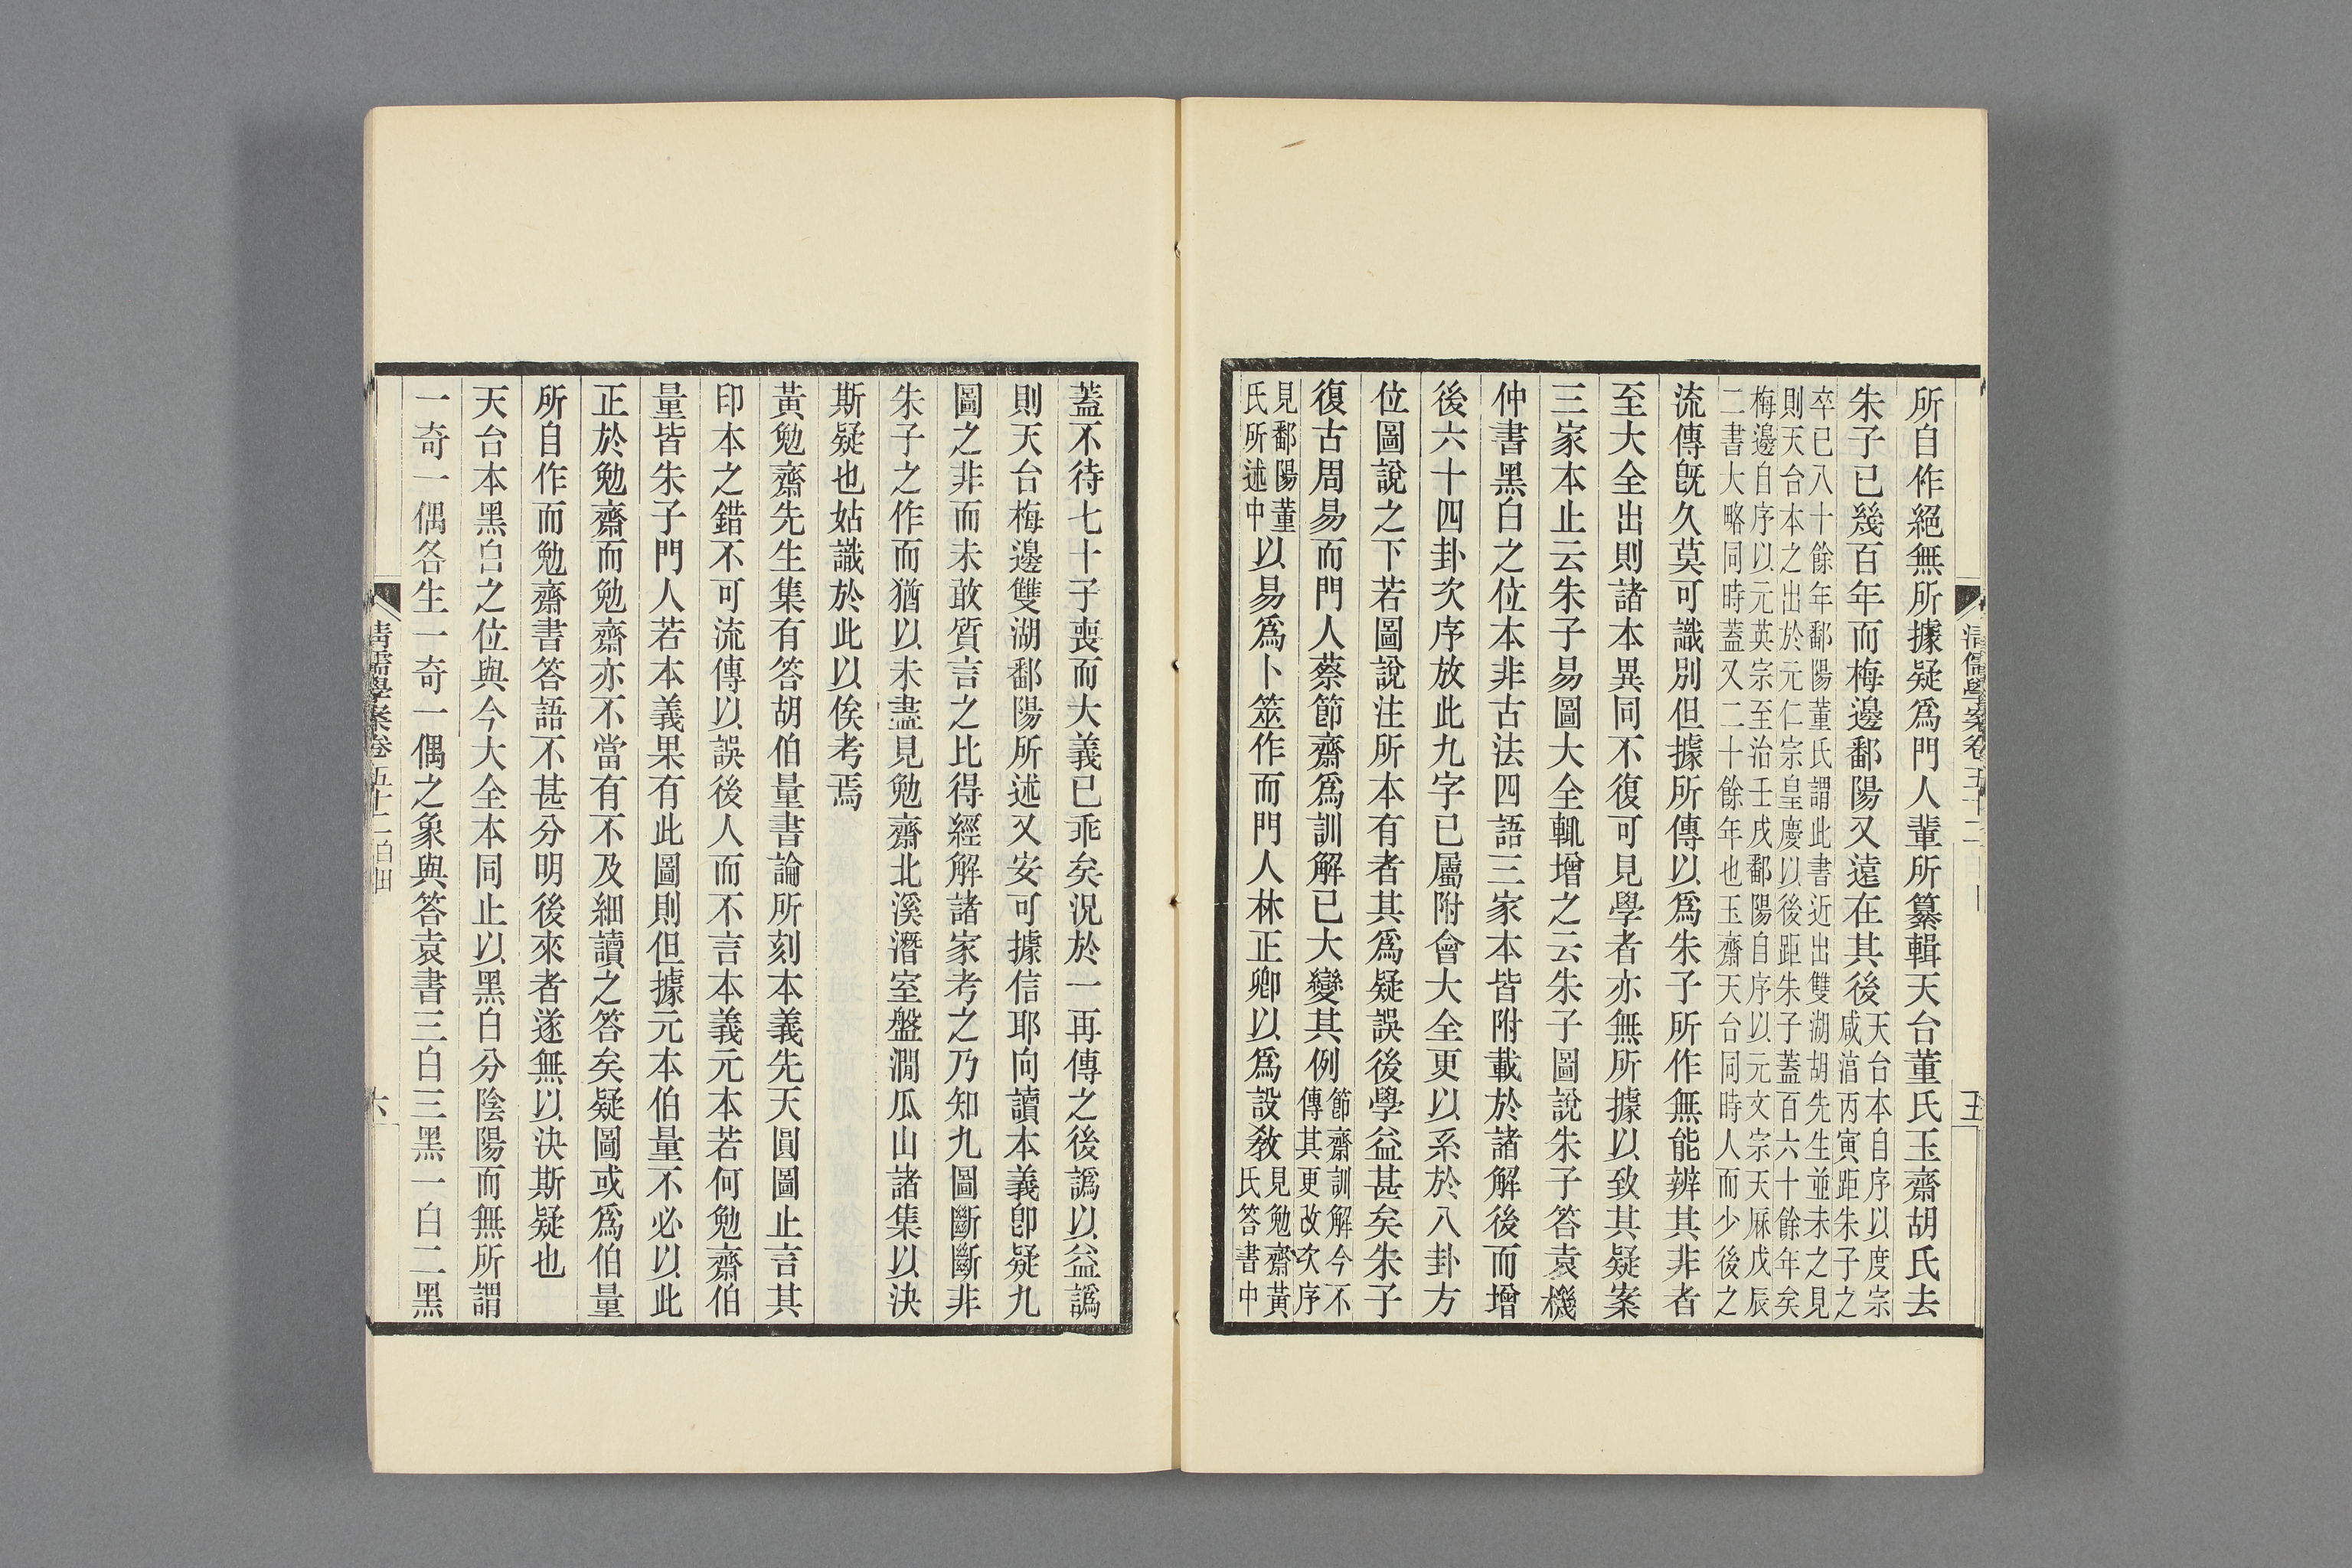 所自作絕無所據疑爲門人輩所纂輯天台董氏玉齋胡氏去
朱子已幾百年而梅邊鄱陽又遠在其後天台本自序以度宗咸淳丙寅距朱子之
卒已八十餘年鄱陽董氏謂此書近出雙湖胡先生並未之見則天台本之出於元仁宗皇慶以後距朱子蓋百六十餘年矣
梅邊自序以元英宗至治壬戌鄱陽自序以元文宗天厤戊辰二書大略同時蓋又二十餘年也玉齋天台同時人而少後之
流傳旣久莫可識別但據所傳以爲朱子所作無能辨其非者
至大全出則諸本異同不復可見學者亦無所據以致其疑案
三家本止云朱子易圖大全輒增之云朱子圖說朱子答袁機
仲書黑白之位本非古法四語三家本皆附載於諸解後而增
後六十四卦次序放此九字已屬附會大全更以系於八卦方
位圖說之下若圖說注所本有者其爲疑誤後學益甚矣朱子
復古周易而門人蔡節齋爲訓解已大變其例節齋訓解今不傳其更改次序
見鄱陽董氏所述中以易爲卜筮作而門人林正卿以爲設敎見勉齋黃氏答書中
蓋不待七十子喪而大義已乖矣況於一再傳之後譌以益譌
則天台梅邊雙湖鄱陽所述又安可據信耶向讀本義卽疑九
圖之非而未敢質言之比得經解諸家考之乃知九圖斷斷非
朱子之作而猶以未盡見勉齋北溪潛室盤澗瓜山諸集以決
斯疑也姑識於此以俟考焉
黃勉齋先生集有答胡伯量書論所刻本義先天圓圖止言其
印本之錯不可流傳以誤後人而不言本義元本若何勉齋伯
量皆朱子門人若本義果有此圖則但據元本伯量不必以此
正於勉齋而勉齋亦不當有不及細讀之答矣疑圖或爲伯量
所自作而勉齋書答語不甚分明後來者遂無以決斯疑也
天台本黑白之位與今大全本同止以黑白分陰陽而無所謂
一奇一偶各生一奇一偶之象與答袁書三白三黑一白二黑
清儒學案卷五十二 白田
六
清儒學案卷五十二
五